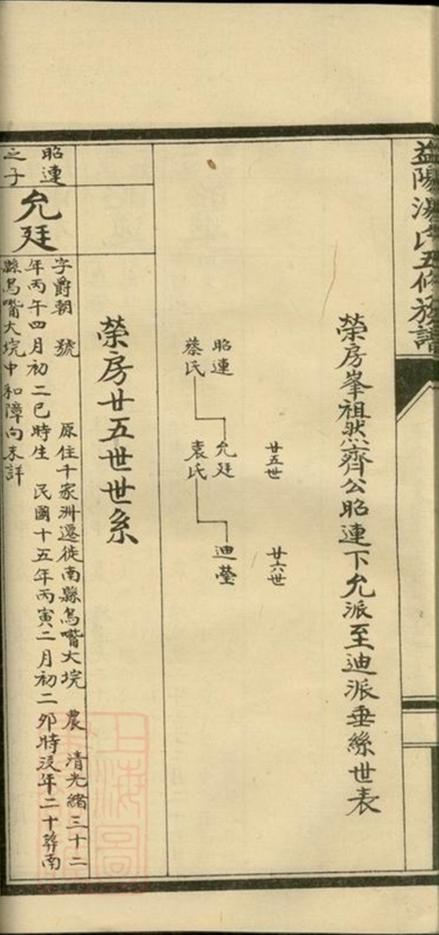 益陽湯氏五修族譜
榮房峯祖然齊公昭連下允派至迪派垂絲世表
廿五世
廿六世
昭連
蔡氏
允廷
袁氏
迪瑩
榮房廿五世世系
昭連
之子
允廷
字爵朝 號 原住千家洲遷徙南縣烏嘴大垸 農 清光緒三十二
年丙午四月初二巳時生 民國十五年丙寅二月初二卯時没年二十葬南
縣烏嘴大垸中和障向未詳
上海圖